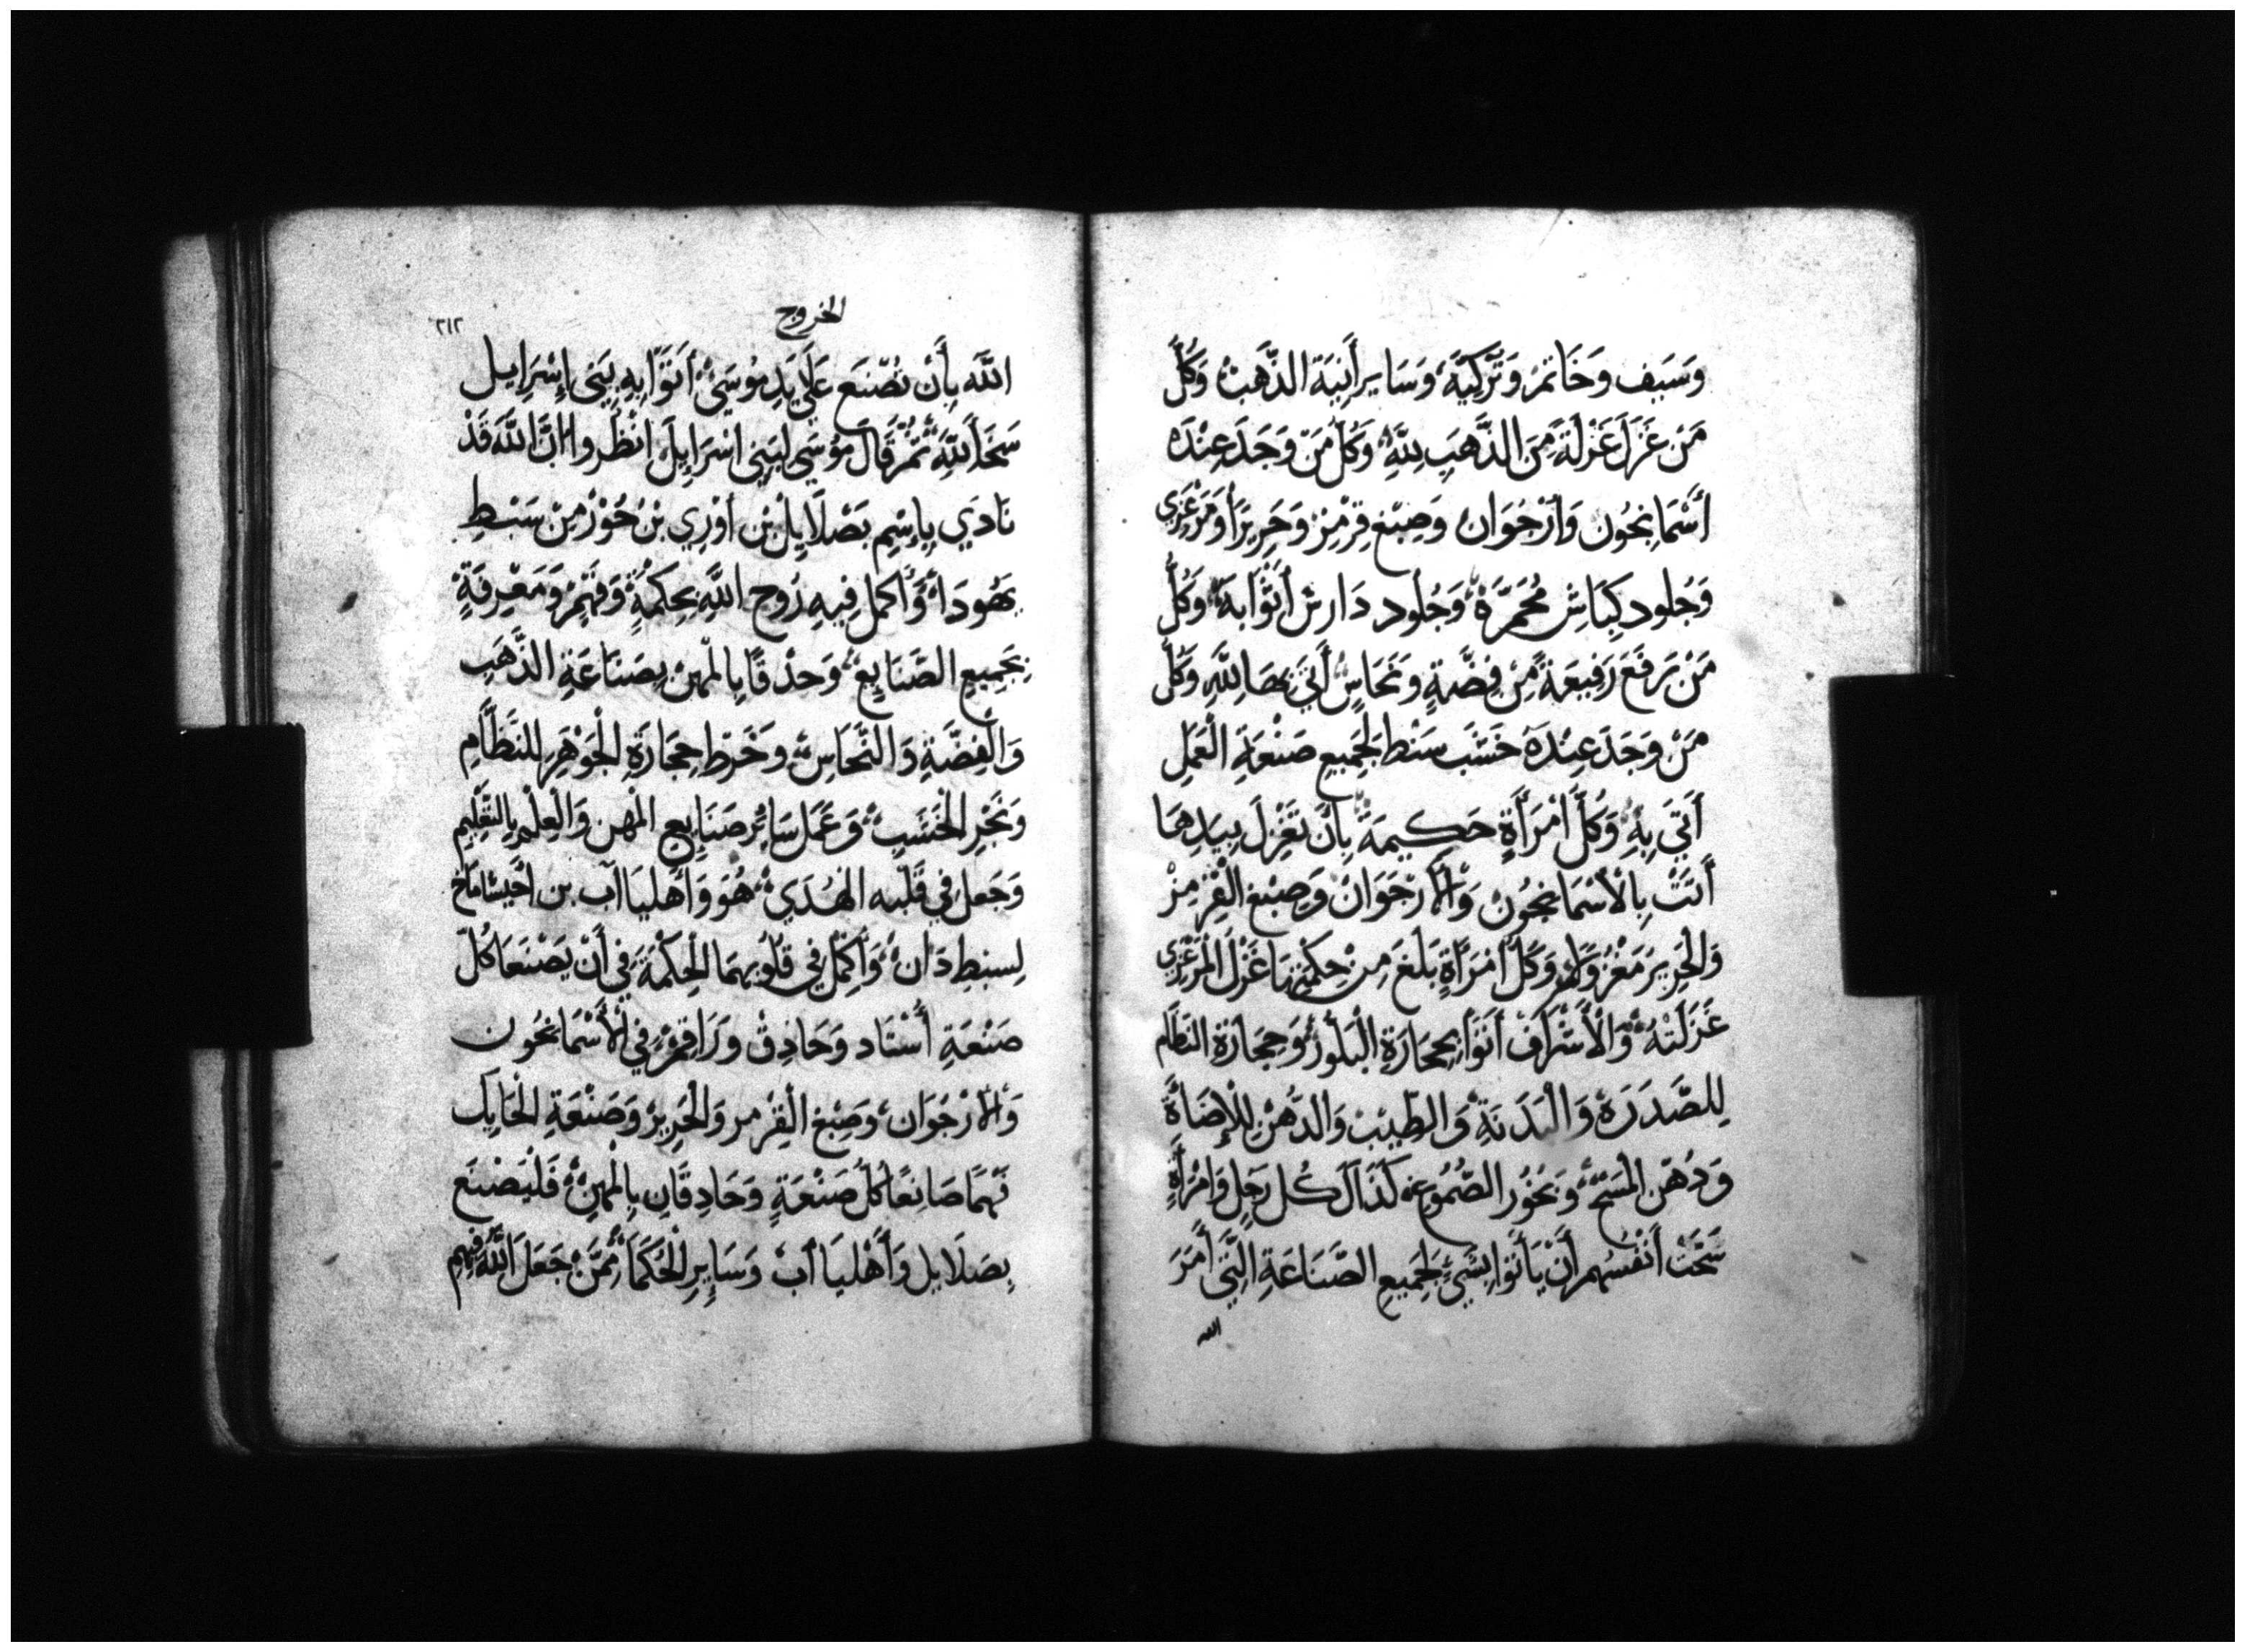 وَسَيف وَخَاتَمْ وَتَزكِيَّة وَسَاير أَنِيَة الذَّهَبْ وَكُلُّ
مَنْ غَزَلَ غَزْلَةً مِنَ الذَّهَبِ لِلَّهِ وَكُلُ مَنْ وَجَدَ عِنْدَهُ
أَسْمَانجُون وَأرْجُوَان وَصِبْغ قِرْمِز وَحَرِيرًا وَمَرْعَزِي
وَجُلود كِبَاشٍ مُحَمَّرَة وَجُلُود دَارش أَتَوْا بهِ وَكُلُّ
مَنْ رَفَعَ رَفِيعَةً مِنْ فِضَّةٍ وَنحَاسٍ أَتَي بهَا لِلَّهِ وَكُلُّ
مَنْ وَجَدَ عِنْدَهُ خَشَبَ سَنط لِجَمِيعِ صَنْعَةِ الْعَمَلِ
أَتَي بِهِ وَكُلُّ امْرَأَةٍ حَكيمَةً بِأَنْ تَغْزِلَ بِيَدِهَا
أَتَتْ بِالأسْمَانجُون وَالأرْجَوَانْ وَصِبْغ الْقِرْمِزْ
وَالْحَرِير مَغْزُولاً وَكُلُ امْرَأَةٍ بَلَغَ مِنْ حِكْمَتِهَا غَزْلَ الْمَرْعَزِي
غَزَلَتْهُ وَالْأَشْرَافْ أَتَوْا بِحِجَارَةِ الْبَلُّورْ وَحِجَارَة النظَام
لِلصَّدرَة وَالْبَدَنَةِ وَالطِّيبْ وَالدُّهْنِ لِلْإضَاةِ
وَدُهْن الْمَسْحِ وَبخُور الصُّمُوغ كَذَالَ كُل رَجلٍ وَامْرَأَةٍ
سَخَتْ أَنْفُسُهم أَنْ يَأْتوا بِشَيْءٍ لِجَمِيع الصَّنَاعَةِ الَّتِي أَمَرَ
الله
الخروج
٢١٦
اللَّه بِأَن تُصْنَع عَلَي يَدِ مُوسَيْ أتَوْا بِهِ بَنِي إسْرَاِيل
سَخَا لِلَّهِ ثُمَّ قَالَ مُوسَي لبَنِي اسْرَاِيلَ انْظُروا انَّ اللَّه قَدْ
نَادَي بِإسْمِ بَصْلَايِلْ بْن اُورِي بْن حُوْرْ مِنْ سَبْطِ
يهُودَا وَأَكمل فِيهِ رُوح اللَّهِ بحِكمَةٍ وَفَهْمٍ وَمَعْرِفَةٍ
بِجَمِيعِ الصَّنَايِعْ وَحدْقًا بِالْمهن بِصَنَاعَةِ الذَّهَبِ
وَالْفِضَّةِ وَالنُّحَاسِ وَخَرط حِجَارَةِ الْجَوْهَرِ للنَّظَّامِ
وَنَجْرِ الْخَشَبِ وَعَمَل سَائِر صَنَايِعِ الْمهن وَالْعِلْم بِالتَّعْلِيمِ
وَجَعَلَ فِي قَلْبه الْهُدَي هُوَ وَأهليَا اب بن اَخِيسَامَاخ
لسبطِ دَان وَأكمَل فِي قُلُوبهمَا الْحِكْمَة فِي أَنْ يَصْنَعَا كُلَّ
صَنْعَةِ أُسْتَاد وَحَادِقْ وَرَاقِمْ فِي الأَسْمَانجُون
وَالأرْجُوَان وَصِبْغ الْقِرْمز وَالْحَرِيرْ وَصَنْعَةِ الْحَايك
فَهُمَا صَانِعًا كُلُّ صَنْعَةٍ وَحَادِقَانِ بِالْمهنِ فَلْيَصْنَع
بصَلَايل وَأَهْليَا أبْ وَسَايِرِ الْحُكَمَا مِمَّنْ جَعَلَ اللَّهُ فِيهِم